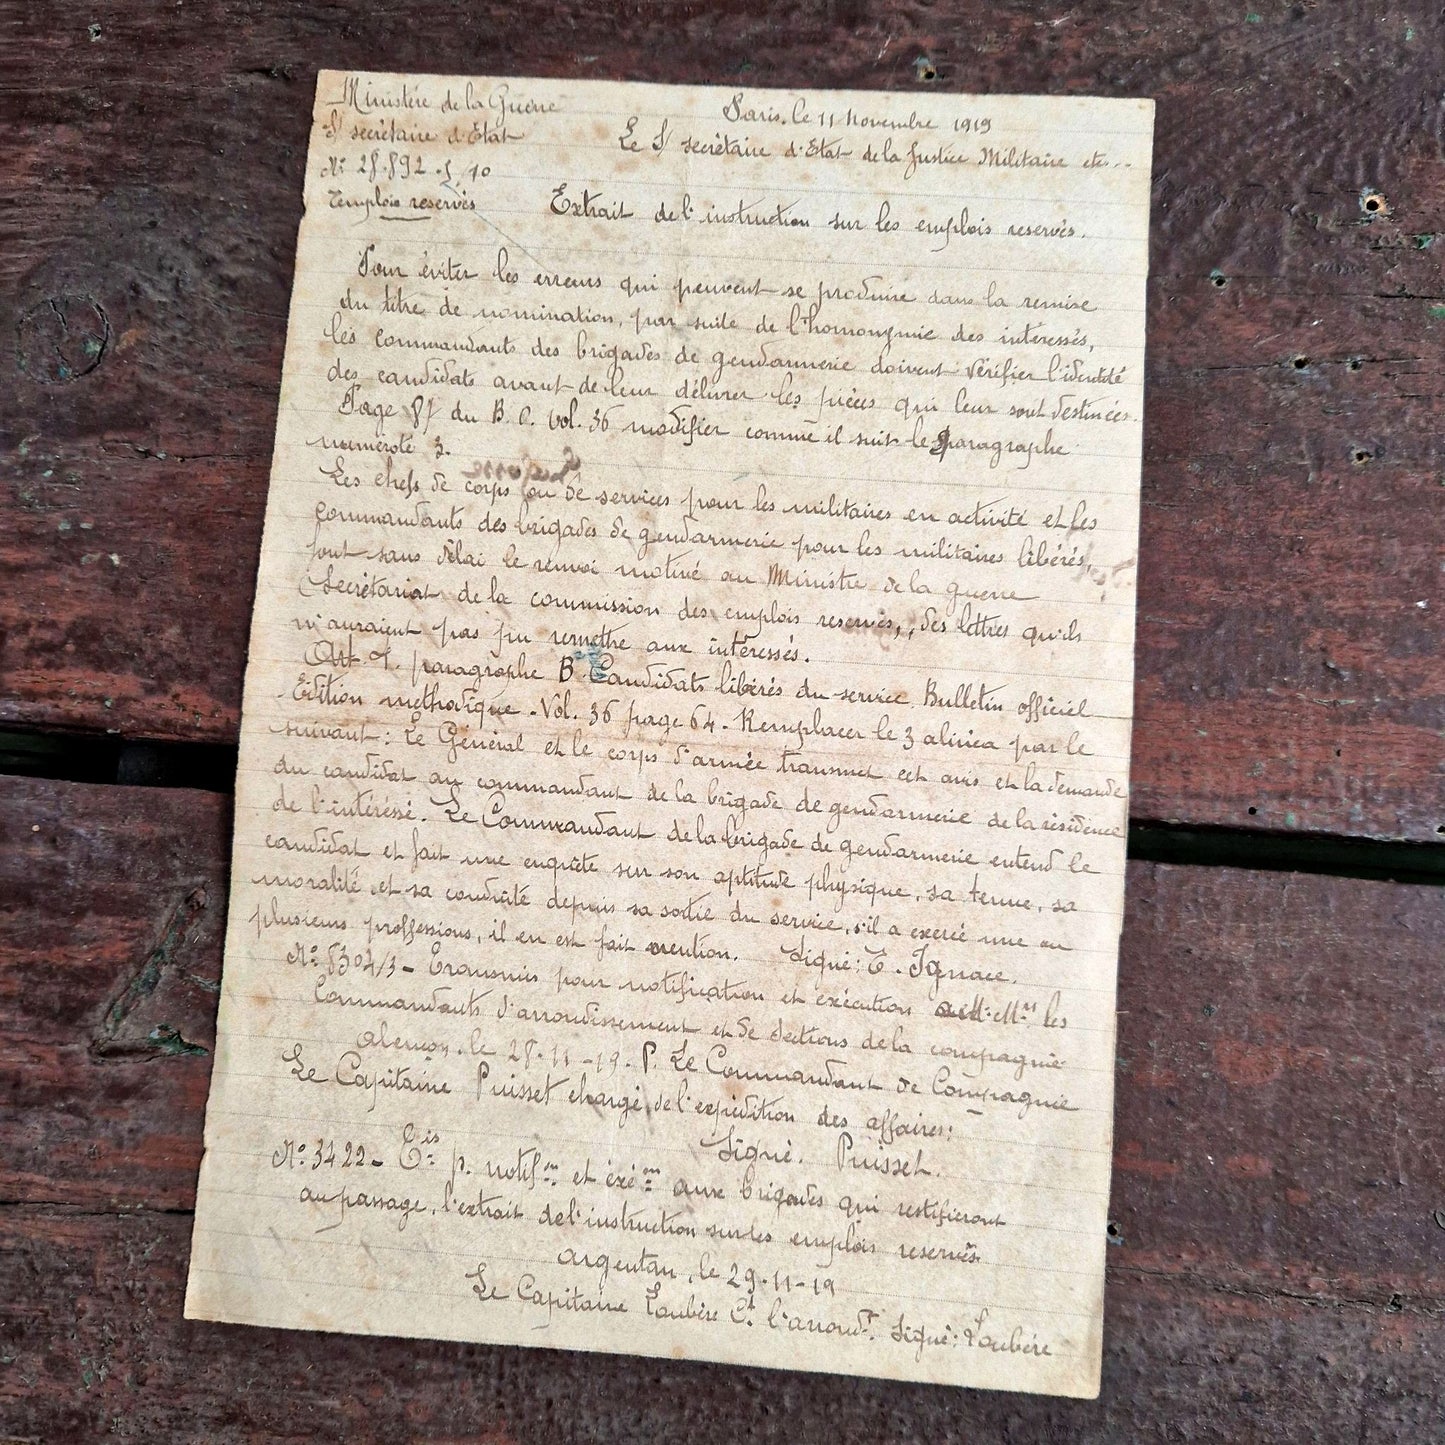 Ministère de la Guerre
Paris, le 11 Novembre 1919
S/ secrétaire d'Etat
Le S/ secrétaire d'Etat de la Justice Militaire etc...
N° 28.892
Emplois reservés
Extrait de l'instruction sur les emplois reservés.
Pour éviter les erreurs qui peuvent se produire dans la remise
du titre de nomination, par suite de l'homonymie des interessés,
les commandants des brigades de gendarmerie doivent vérifier l'identité
des candidats avant de leur délivrer les pièces qui leur sont destinées.
Page 87 du B. O. vol. 36 modifier comme il suit le paragraphe
numéroté 3.
Les chefs de corps ou de services pour les militaires en activité et les
commandants des brigades de gendarmerie pour les militaires libérés,
font sans délai le renvoi motivé au Ministre de la guerre
(Secrétariat de la commission des emplois reservés, des lettres qu'ils
n'auraient pas pu remettre aux intéressés.
Art. 7. paragraphe B Candidats libérés du service. Bulletin officiel
Edition méthodique. Vol. 36 page 64. Remplacer le 3 alinéa par le
suivant: Le Général et le corps d'armée transmet cet avis et la demande
du candidat au commandant de la brigade de gendarmerie de la résidence
de l'intéréssé. Le Commandant de la brigade de gendarmerie entend le
candidat et fait une enquête sur son aptitude physique, sa tenue, sa
moralité et sa conduite depuis sa sortie du service, s'il a exercé une ou
plusieurs proffessions, il en est fait mention. Signé: E. Ignace.
N° 8304/3 - Transmis pour notification et exécution les
Commandants d'arrondissement et de sections de la compagnie
Alençon, le 28-11-19. P. Le Commandant de Compagnie
Le Capitaine Puisset chargé de l'expédition des affaires:
Signé. Puisset.
N° 3422 - Cis p. notif.on et exé.on aux brigades qui restifieront
au passage, l'extrait de l'instruction sur les emplois reservés
Argentan, le 29-11-19
Le Capitaine Loubère Ct. l'arrondt. Signé: Loubère